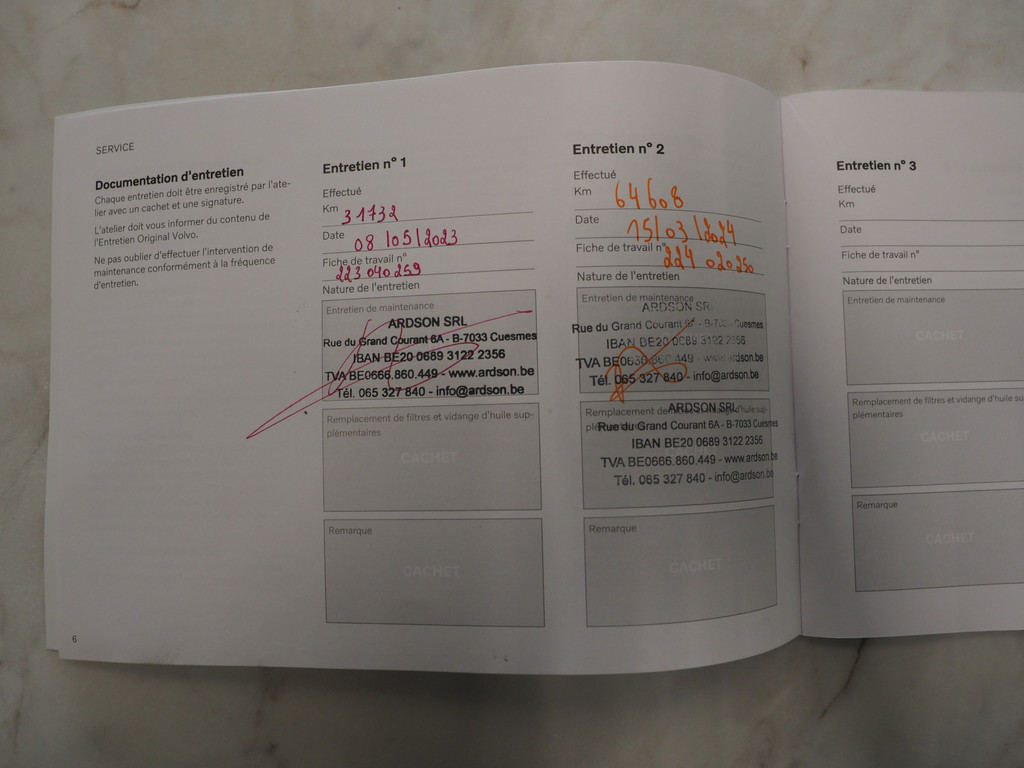 SERVICE
Documentation d'entretien
Chaque entretien doit être enregistré par l'ate-
lier avec un cachet et une signature.
L'atelier doit vous informer du contenu de
l'Entretien Original Volvo.
Ne pas oublier d'effectuer l'intervention de
maintenance conformément à la fréquence
d'entretien.
6
Entretien n° 1
Effectué
Km 31732
Date 08/05/2023
Fiche de travail n°
223040259
Nature de l'entretien
Entretien de maintenance
ARDSON SRL
Rue du Grand Courant 6A - B-7033 Cuesmes
IBAN BE20 0689 3122 2356
TVA BE0666.860.449 - www.ardson.be
Tél. 065 327 840 - info@ardson.be
Remplacement de filtres et vidange d'huile sup-
plémentaires
CACHET
Remarque
CACHET
Entretien n° 2
Effectué
Km 64608
Date 15/03/2024
Fiche de travail n°
224 020250
Nature de l'entretien
Entretien de maintenance
ARDSON SRL
Rue du Grand Courant 6A - B-7033 Cuesmes
IBAN BE20 0689 3122 2356
TVA BE0666.860.449 - www.ardson.be
Tél. 065 327 840 - info@ardson.be
Remplacement de filtres et vidange d'huile sup-
ARDSON SRL
Rue du Grand Courant 6A - B-7033 Cuesmes
IBAN BE20 0689 3122 2356
TVA BE0666.860.449 - www.ardson.be
Tél. 065 327 840 - info@ardson.be
Remarque
CACHET
Entretien n° 3
Effectué
Km
Date
Fiche de travail n°
Nature de l'entretien
Entretien de maintenance
CACHET
Remplacement de filtres et vidange d'huile su
plémentaires
CACHET
Remarque
CACHET